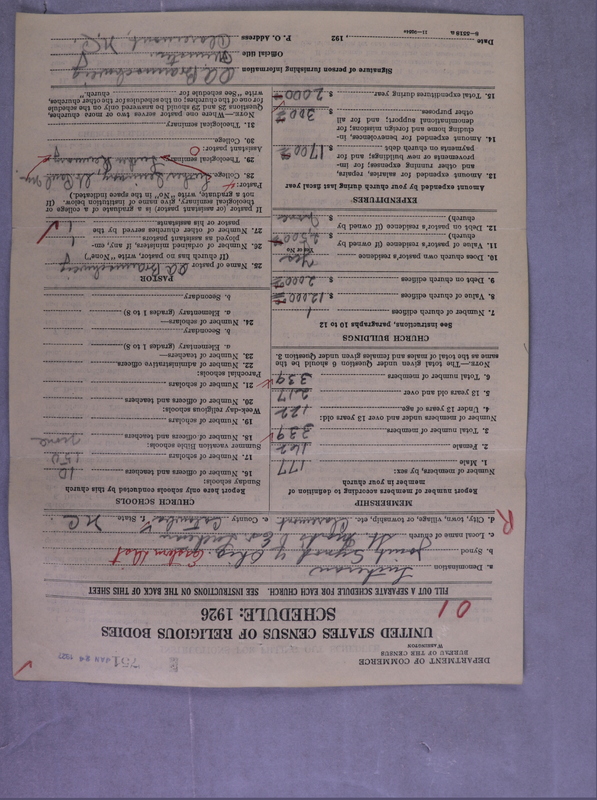 DEPARTMENT OF COMMERCE
BUREAU OF THE CENSUS
WASHINGTON
751
JAN 24 1927
UNITED STATES CENSUS OF RELIGIOUS BODIES
SCHEDULE: 1926
01
FILL OUT A SEPARATE SCHEDULE FOR EACH CHURCH. SEE INSTRUCTIONS ON THE BACK OF THIS SHEET
a. Denomination Lutheran
b. Synod Joint Synod of Ohio Eastern Dist
c. Local name of church St. Mark's Ev. Lutheran
d. City, town, village, or township, etc. Claremont e. County Catawba f. State N.C.
R
MEMBERSHIP
Report number of members according to definition of member in your church
Number of members, by sex:
1. Male 177
2. Female 162
3. Total number of members. 339
Number of members under and over 13 years old:
4. Under 13 years of age. 122
5. 13 years old and over 217
6. Total number of members 339
NOTE.—The total given under Question 6 should be the same as the total of males and females given under Question 3.
CHURCH BUILDINGS
See Instructions, paragraphs 10 to 12
7. Number of church edifices 1
8. Value of church edifices $ 12,000
9. Debt on church edifices $ 2,000
10. Does church own pastor's residence Yes
Yes or No
11. Value of pastor's residence (if owned by church) $ 2,500
12. Debt on pastor's residence (if owned by church) $ None
EXPENDITURES
Amount expended by your church during last fiscal year
13. Amount expended for salaries, repairs, and other running expenses; for improvements or new buildings; and for payments on church debt $ 1700
14. Amount expended for benevolences, including home and foreign missions; for denominational support; and for all other purposes: $ 300
15. Total expenditures during year. $ 2,000
CHURCH SCHOOLS
Report here only schools conducted by this church
Sunday schools:
16. Number of officers and teachers 10
17. Number of scholars 150
Summer vacation Bible schools:
18. Number of officers and teachers none
19. Number of scholars
Week-day religious schools:
20. Number of officers and teachers
21. Number of scholars
Parochial schools:
22. Number of administrative officers
23. Number of teachers—
a. Elementary (grades 1 to 8)
b. Secondary
24. Number of scholars—
a. Elementary (grades 1 to 8)
b. Secondary
PASTOR
25. Name of pastor
(If church has no pastor, write "None")
26. Number of ordained ministers, if any, employed as assistant pastors. 1
27. Number of other churches served by the pastor or his assistants. 1
If pastor (or assistant pastor) is a graduate of a college or theological seminary, give name of institution below. (If not a graduate, write "No" in the space indicated.)
Pastor:
28. College.
29. Theological seminary Luther Seminary
Assistant pastor:
30. College.
31. Theological seminary
NOTE.—Where one pastor serves two or more churches, Questions 28 and 29 should be answered only on the schedule for one of the churches; on the schedules for the other churches, write "See schedule for church."
Signature of person furnishing information
Official title Minister
P. O. Address Claremont, N.C.
Date , 192
8—5518 a